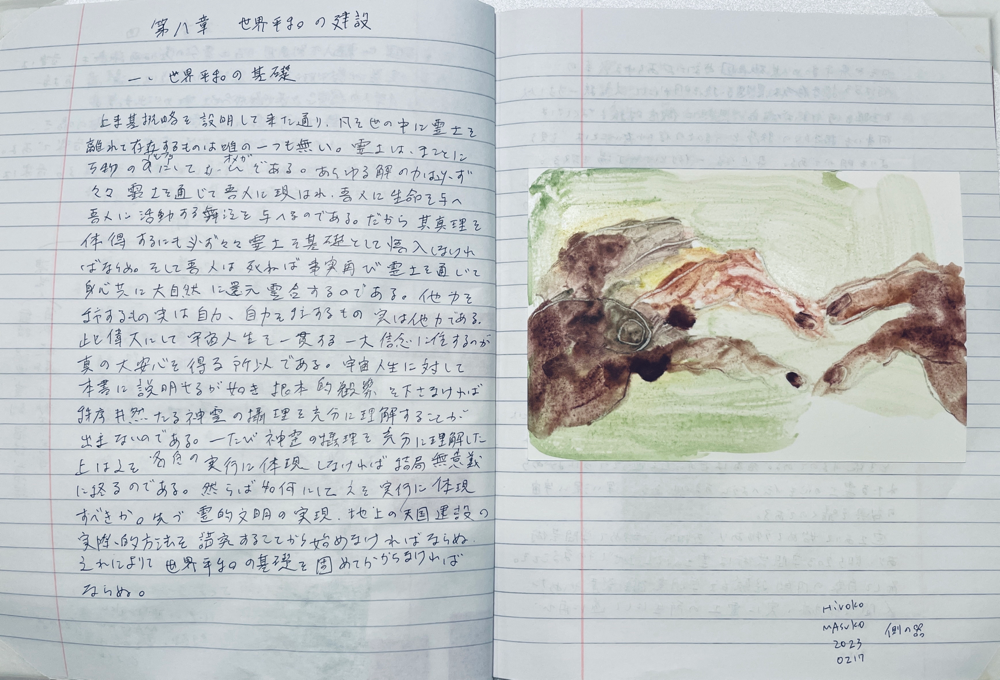 第八章 世界平和の建設
一、世界平和の基礎
上来其概略を説明して来た通り、凡そ世の中に霊士を
離れて存在するものは唯の一つも無い。霊士は、まことに
万物の アルファ にしても、オメガ である。あらゆる解の力は必ず
々々 霊士を通じて吾人に現はれ、吾人に生命を与へ
吾人に活動する舞台を与へるのである。だから其真理を
体得するにも必ず々々霊士を基礎として悟入しなけれ
ばならぬ。そして吾人は死ねば事実再び霊士を通じて
身心共に大自然に還元霊合するのである。他力を
行するもの実は自力、自力を行するもの実は他力である。
偉大にして宇宙人生を一貫する一大信念に住するのが
真の大安心を得る所以である。宇宙人生に対して
本書に説明せるが如き根本的観察を下さなければ
秩序井然たる神霊の攝理を充分に理解することが
出来ないのである。一たび神霊の攝理を充分に理解した
上は之を各自の実行に体現しなければ結局無意義
に終るのである。然らば如何にして之を実行に体現
すべきか。先づ霊的文明の実現、地上の天国建設の
実際的方法を講究することから始めなければならぬ。
之れによりて世界平和の基礎を固めてかからなければ
ならぬ。
Hiroko
MAsuko
2023
0217